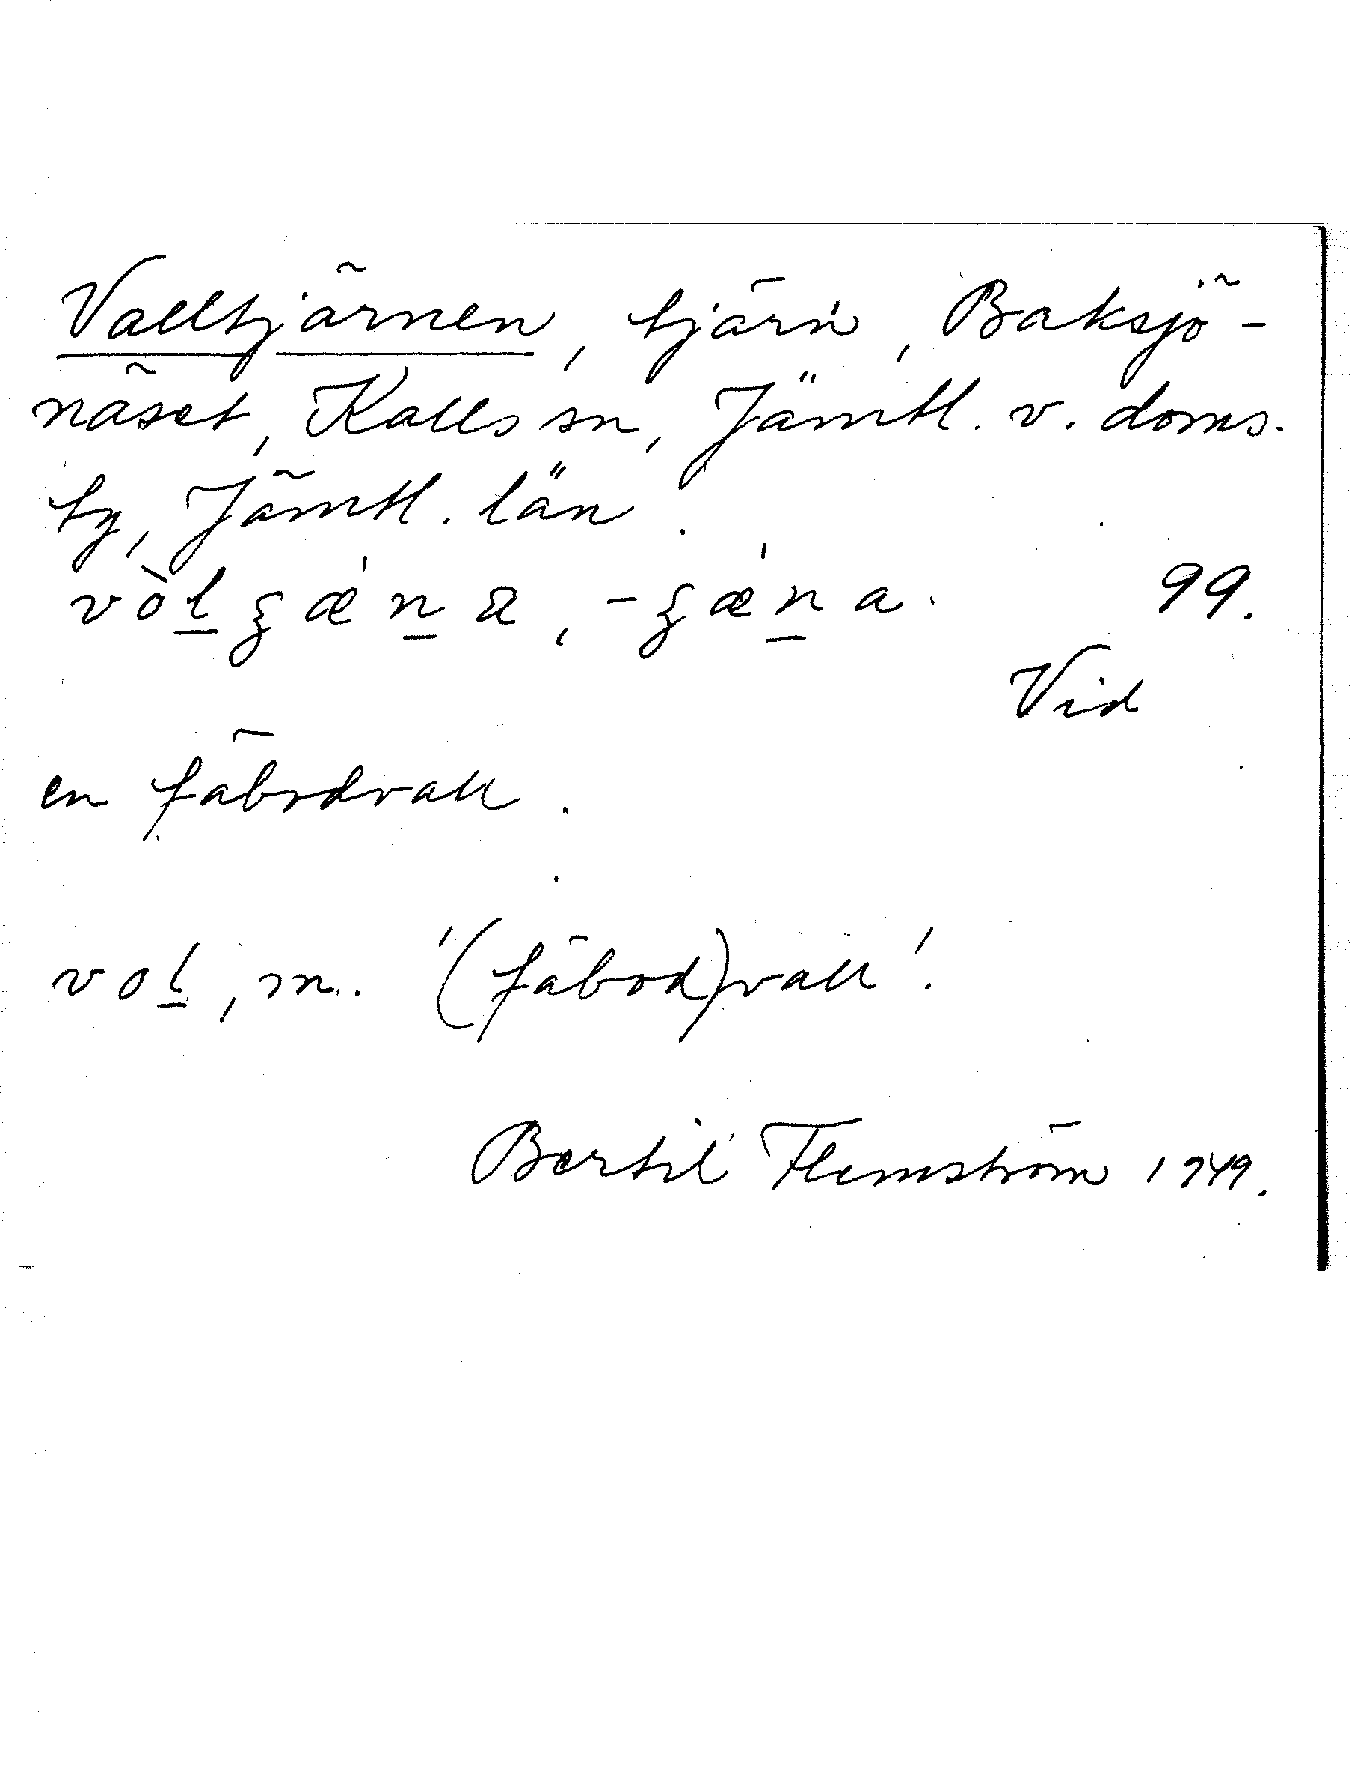 Valltjärnen, tjärn, Baksjö-
näset, Kalls sn, Jämtl. v. doms.
tg, Jämtl. län.
vòḻʒǽṉa, -ʒǽṉa. 99.
Vid
en fäbodvall.
voḻ, m. '(fäbod)vall'.
Bertil Flemström 1949.